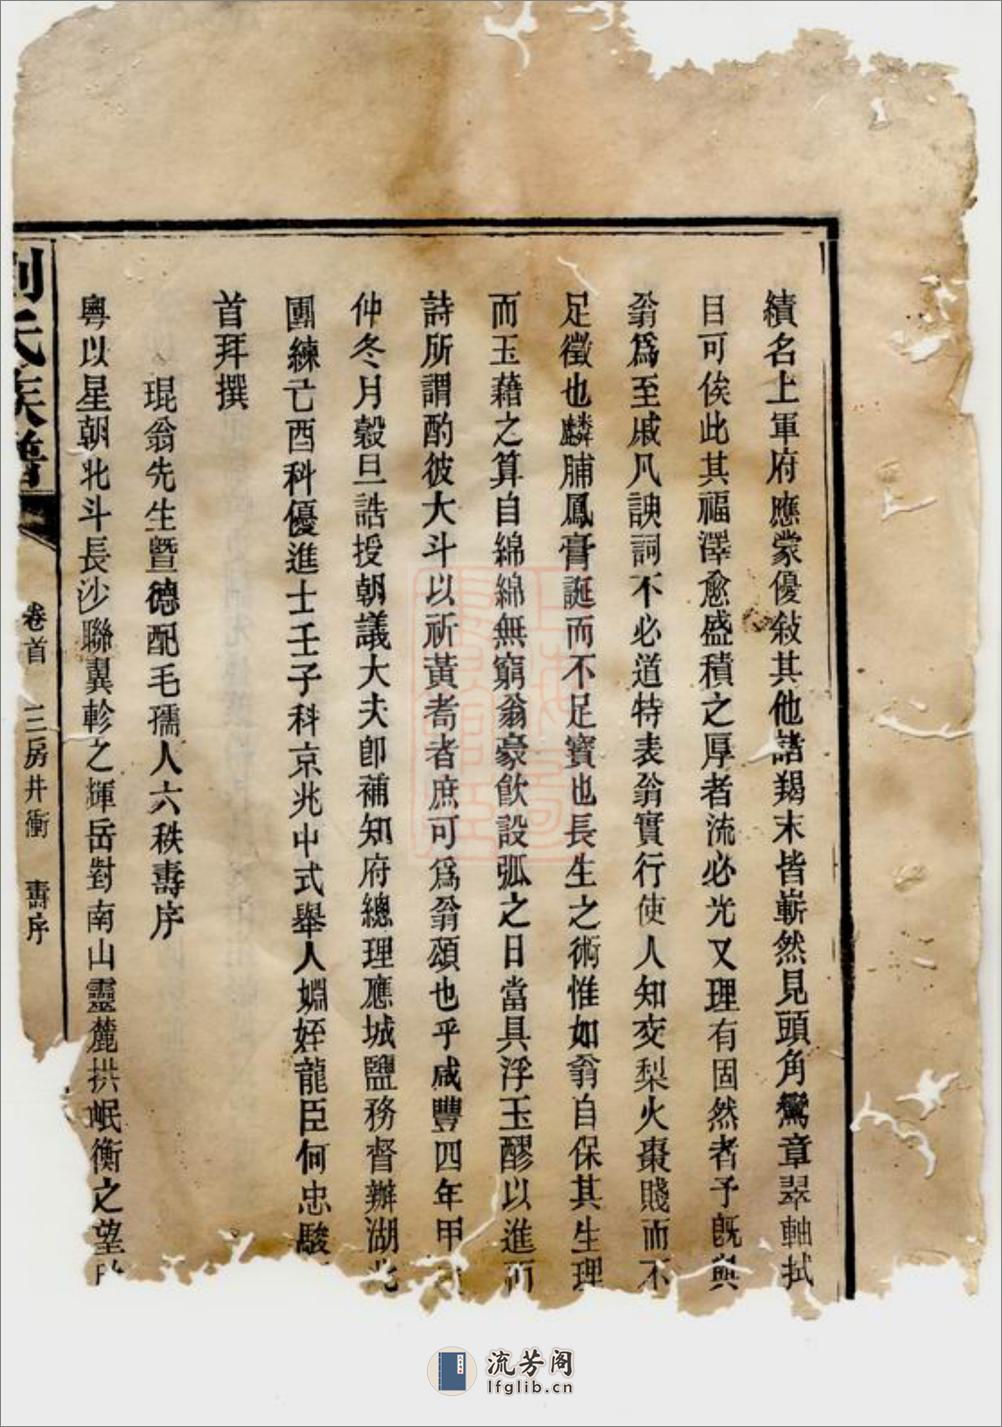 績名上軍府應蒙優敍其他諸羯末皆嶄然見頭角鸞章翠軸拭
目可俟此其福澤愈盛積之厚者流必光又理有固然者予旣與
翁爲至戚凡諛詞不必道特表翁實行使人知交梨火棗賤而不
足徵也麟脯鳳膏誕而不足寶也長生之術惟如翁自保其生理
而玉藉之算自綿綿無窮翁豪飲設弧之日當具浮玉醪以進而
詩所謂酌彼大斗以祈黃耇者庶可爲翁頌也乎咸豐四年甲
仲冬月榖旦誥授朝議大夫卽補知府總理應城鹽務督辦湖北
團練己酉科優進士壬子科京兆中式舉人姻姪龍臣何忠駿
首拜撰
琨翁先生暨德配毛孺人六秩壽序
粵以星朝北斗長沙聯翼軫之輝岳對南山靈麓拱岷衡之望
劉氏族譜
卷首 三房井衝 壽序
流芳阁
lfglib.cn